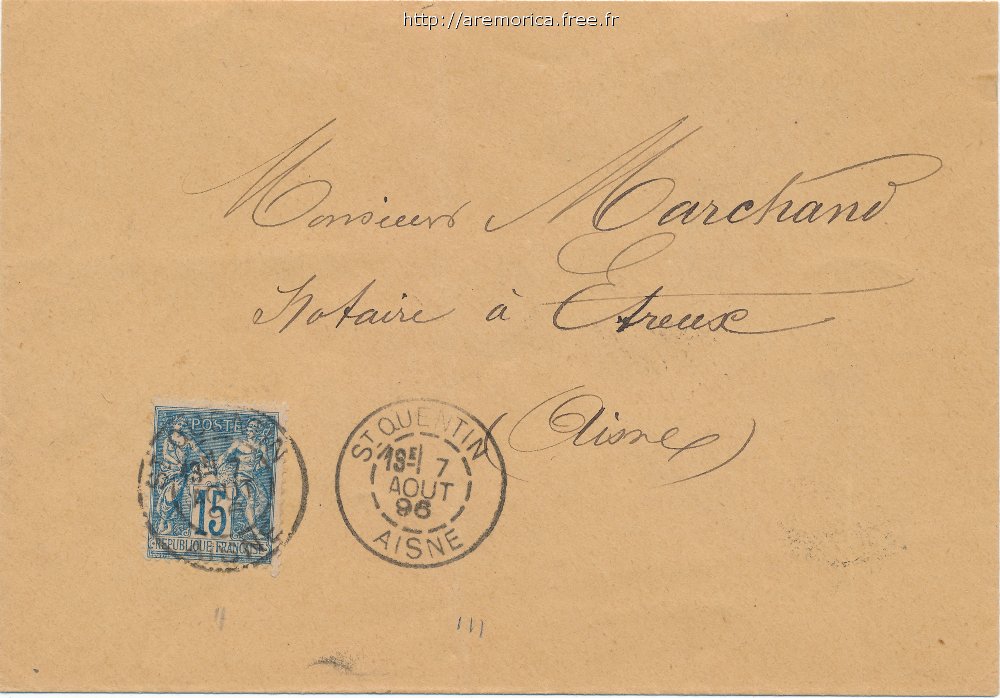 http://aremorica.free.fr
Monsieur Marchand
Notaire à Etreux
(Aisne)
POSTE
15
REPUBLIQUE FRANÇAISE
ST QUENTIN
13E 7
AOUT
96
AISNE